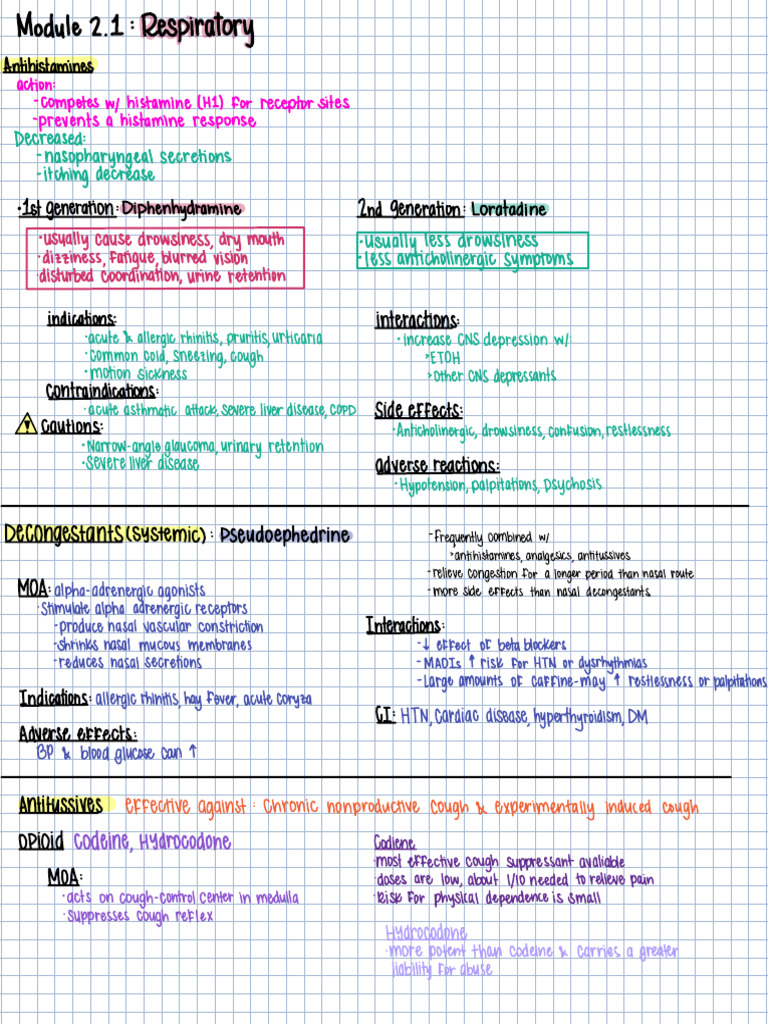 Module 2.1: Respiratory
Antihistamines
action:
-competes w/ histamine (H1) for receptor sites
-prevents a histamine response
Decreased:
-nasopharyngeal secretions
-itching decrease
·1st generation: Diphenhydramine
·usually cause drowsiness, dry mouth
·dizziness, fatigue, blurred vision
disturbed coordination, urine retention
2nd generation: Loratadine
·usually less drowsiness
·less anticholinergic symptoms
indications:
·acute & allergic rhinitis, pruritis, urticaria
·common cold, sneezing, cough
·motion sickness
Contraindications:
·acute asthmatic attack, severe liver disease, COPD
Cautions:
·Narrow-angle glaucoma, urinary retention
·Severe liver disease
interactions:
·increase CNS depression w/
>ETOH
>other CNS depressants
Side effects:
·Anticholinergic, drowsiness, confusion, restlessness
adverse reactions:
·Hypotension, palpitations, psychosis
Decongestants (systemic): Pseudoephedrine
MOA: alpha-adrenergic agonists
·Stimulate alpha adrenergic receptors
-produce nasal vascular constriction
-shrinks nasal mucous membranes
-reduces nasal secretions
Indications: allergic rhinitis, hay fever, acute coryza
Adverse effects:
BP & blood glucose can ↑
-frequently combined w/
>antihistamines, analgesics, antitussives
-relieve congestion for a longer period than nasal route
-more side effects than nasal decongestants
Interactions:
-↓ effect of beta blockers
-MAOIs ↑ risk for HTN or dysrhythmias
-Large amounts of caffine-may ↑ restlessness or palpitations
CI: HTN, cardiac disease, hyperthyroidism, DM
Antitussives effective against: Chronic nonproductive cough & experimentally induced cough
Opioid Codeine, Hydrocodone
MOA:
·acts on cough-control center in medulla
·suppresses cough reflex
Codiene
·most effective cough suppressant avaliable
·doses are low, about 1/10 needed to relieve pain
·Risk for physical dependence is small
Hydrocodone
·more potent than codeine & carries a greater
liability for abuse